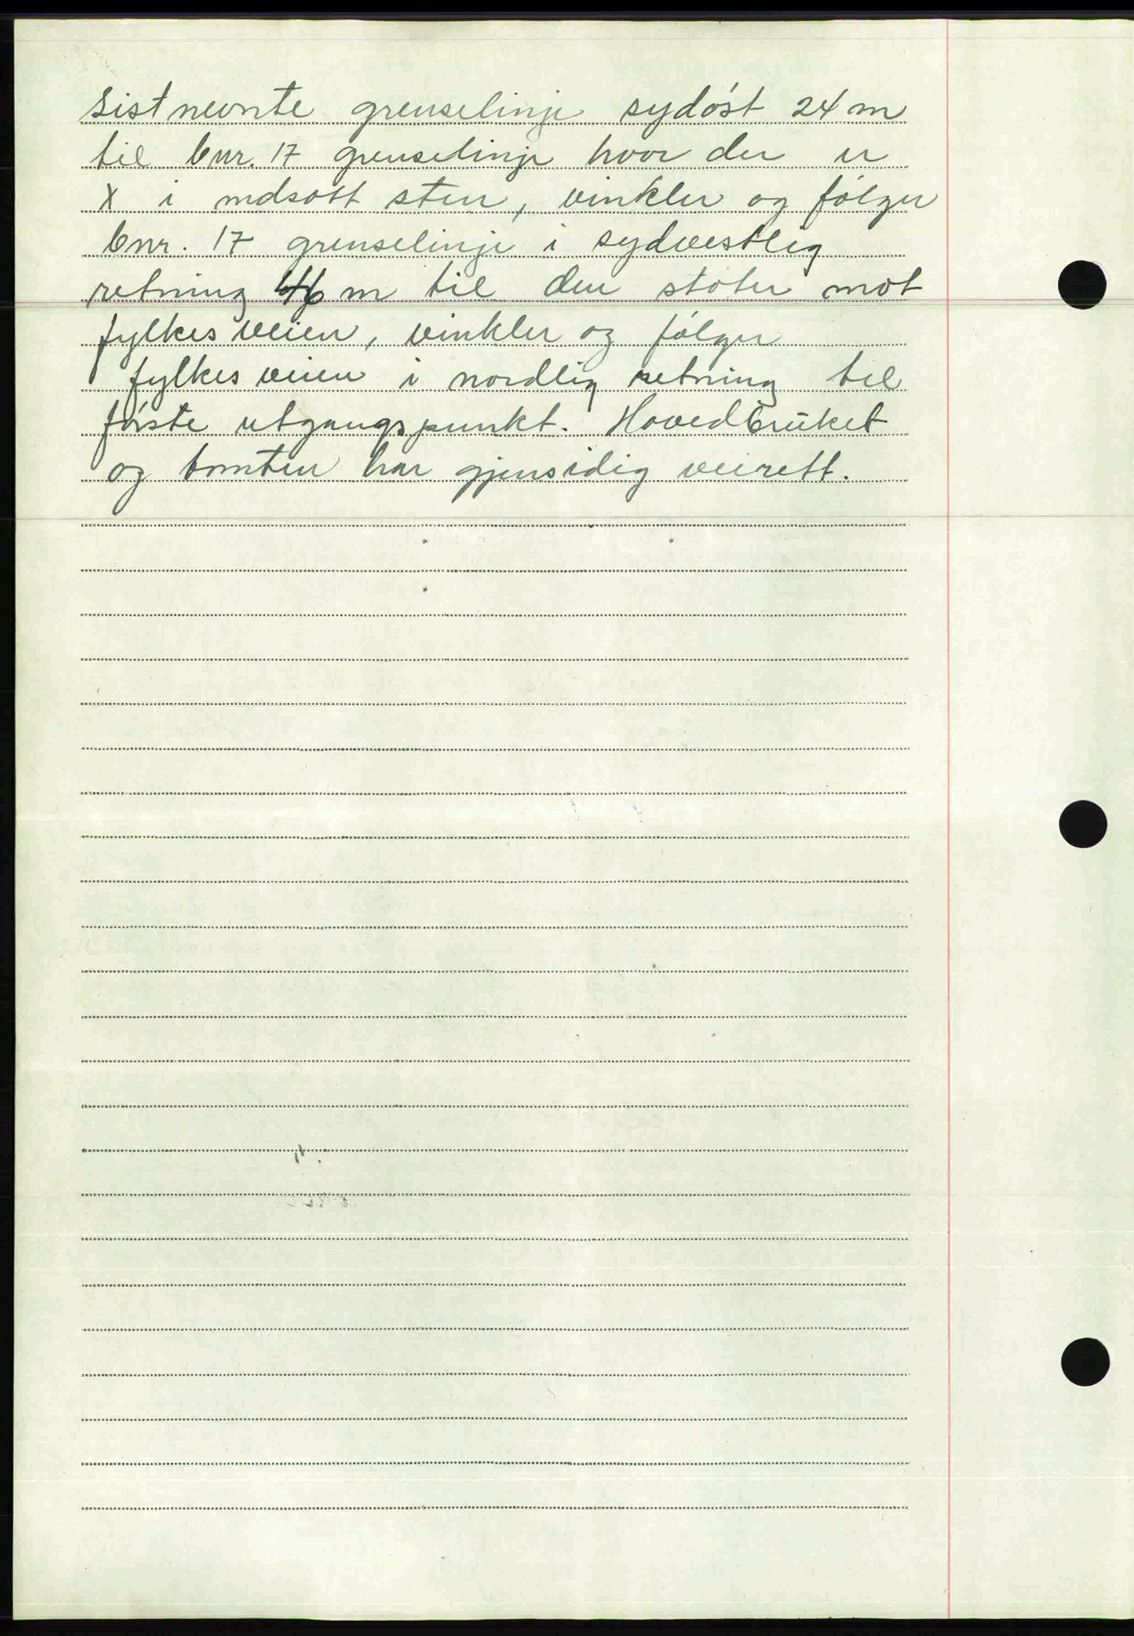 sistnevnte grenselinje sydøst 24 m
til bnr. 17 grenselinje hvor der er
X i nedsatt sten, vinkler og følger
bnr. 17 grenselinje i sydvestlig
retning 46 m til den støter mot
fylkesveien, vinkler og følger
fylkesveien i nordlig retning til
første utgangspunkt. Hovedbruket
og tomten har gjensidig veirett.